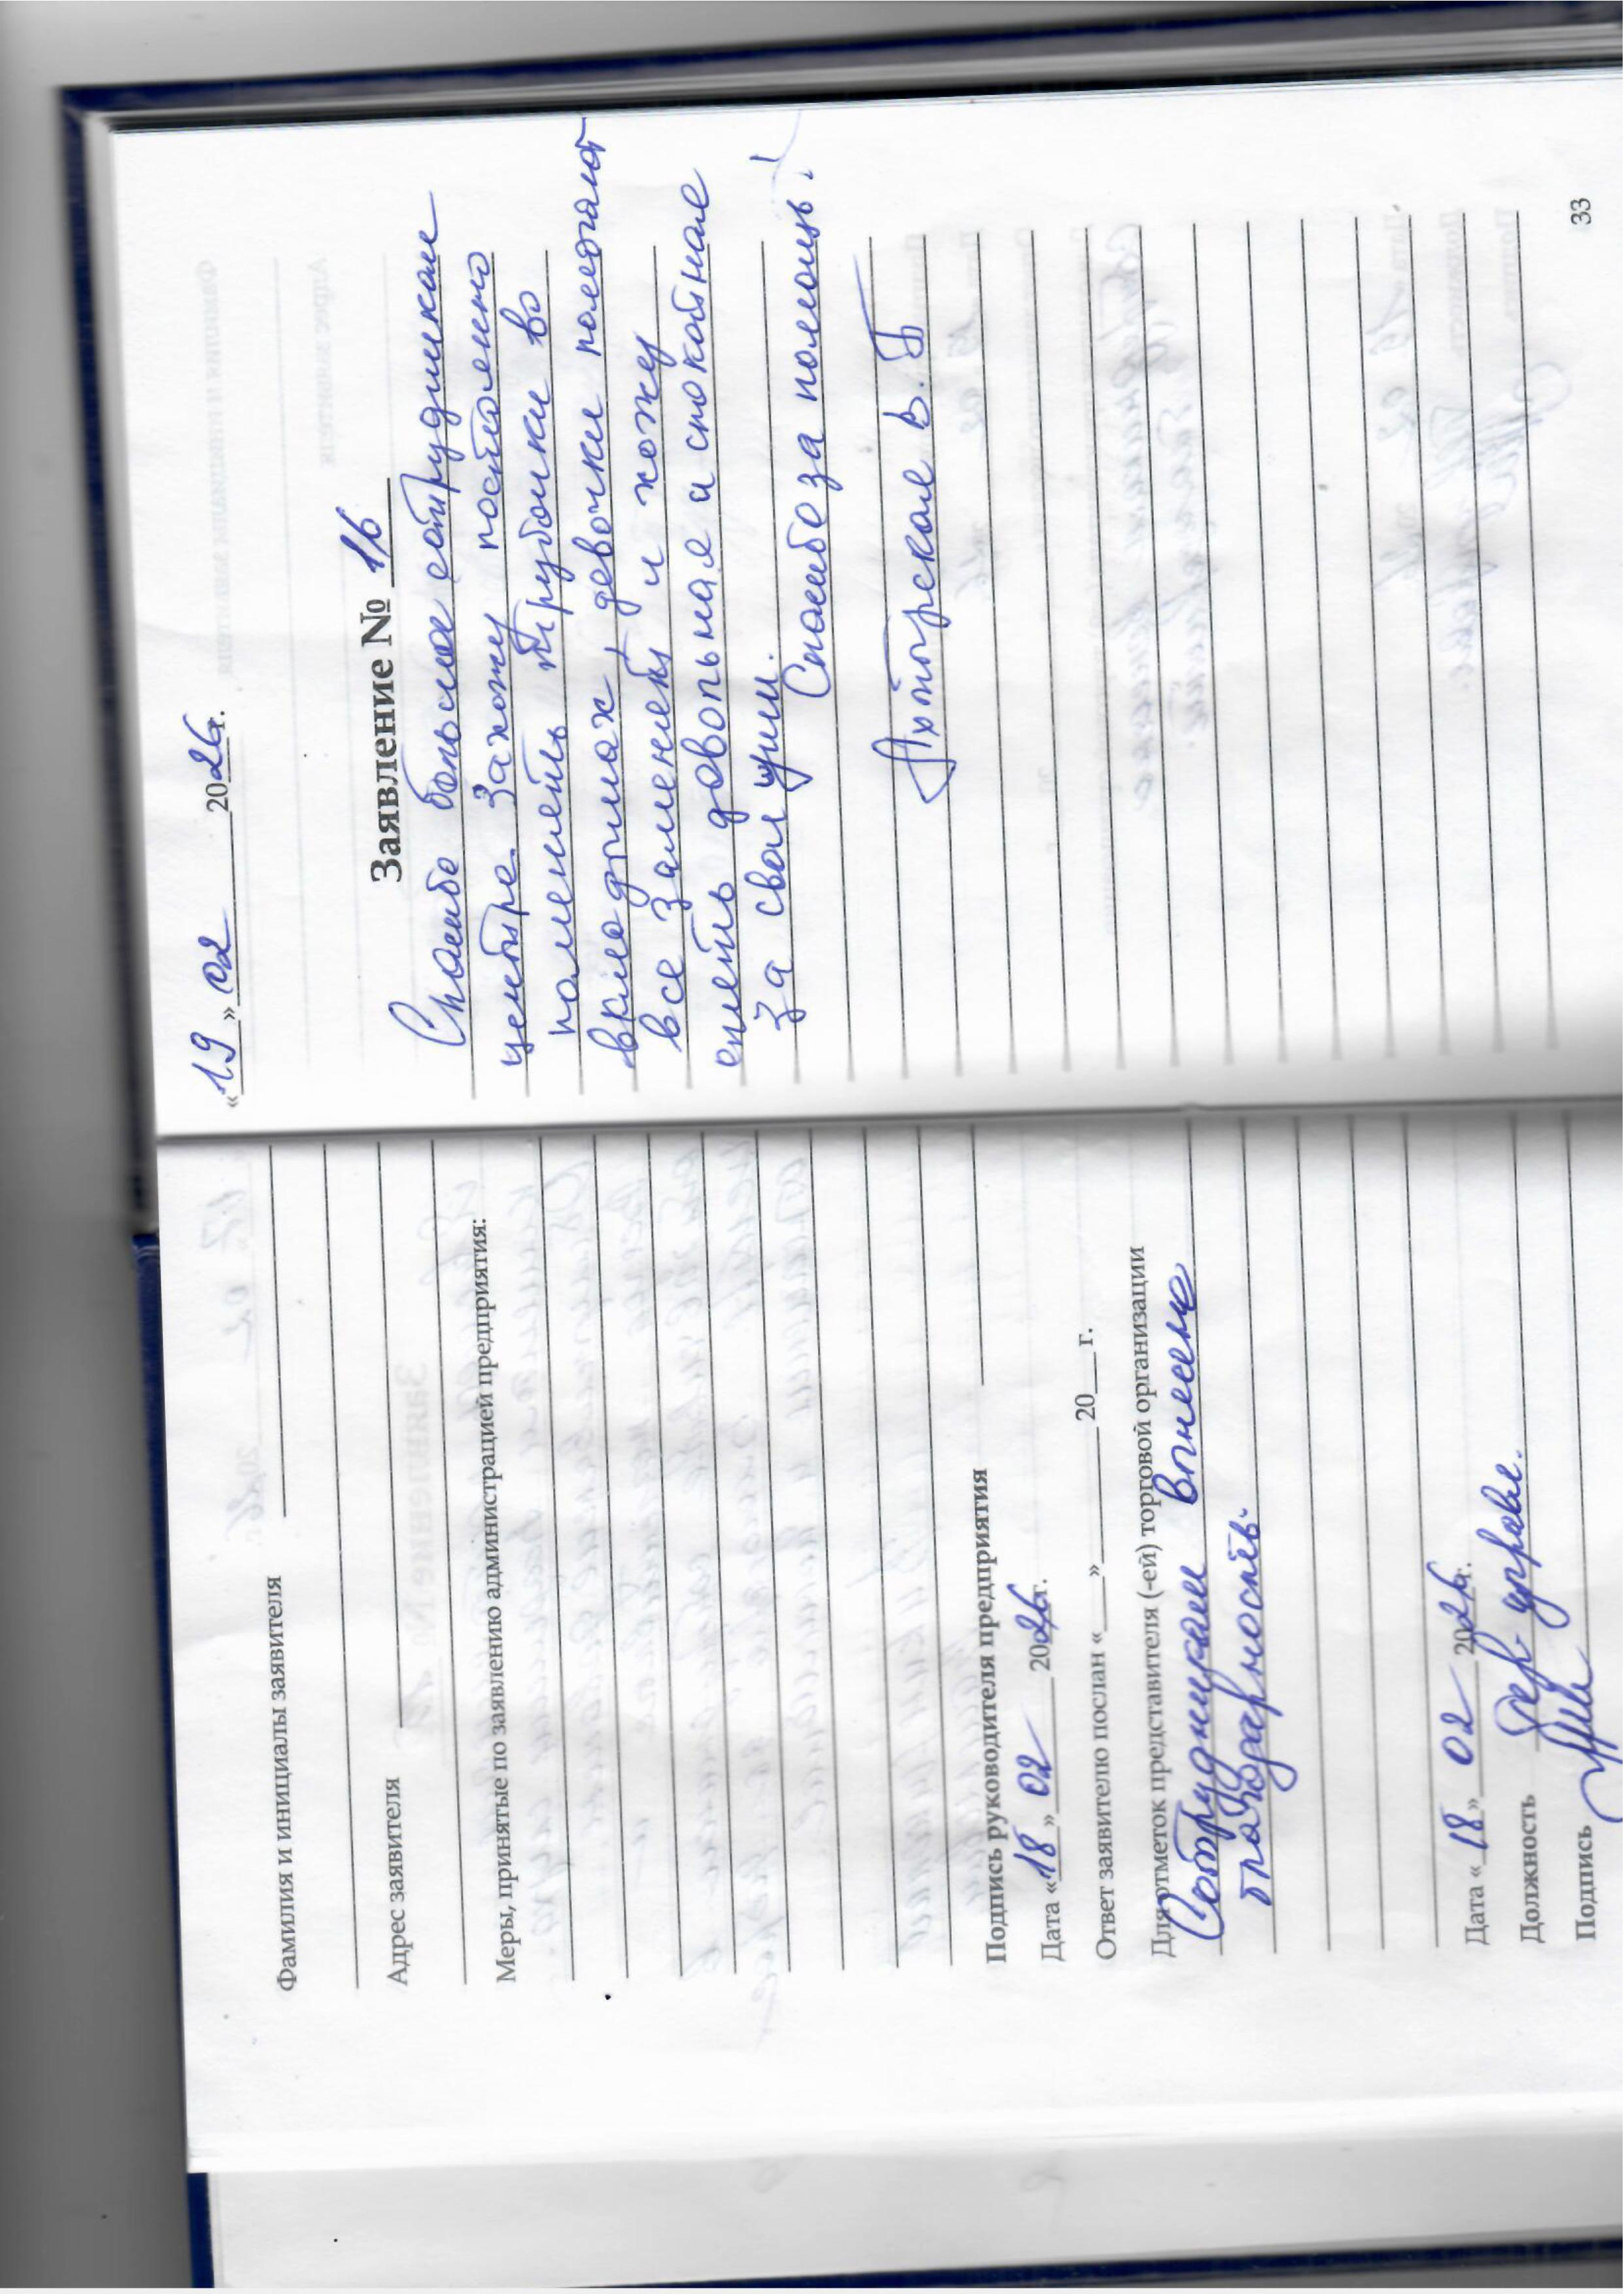 Фамилия и инициалы заявителя
Адрес заявителя
Меры, принятые по заявлению администрацией предприятия:
Подпись руководителя предприятия
Дата «18» 02 2026г.
Ответ заявителю послан «___» ______ 20__ г.
Для отметок представителя (-ей) торговой организации
Сотрудникам вынесена
благодарность.
Дата «18» 02 2026г.
Должность управл.
Подпись
«19» 02 2026г.
Заявление № 16
Спасибо большое сотрудникам
центре. Захожу постоянно
поменять трубочки во
вкладышах, девочки помогают
все заменять и хожу
довольная и спокойная
за свои уши.
Спасибо за помощь!
Ахторская В. Б
33